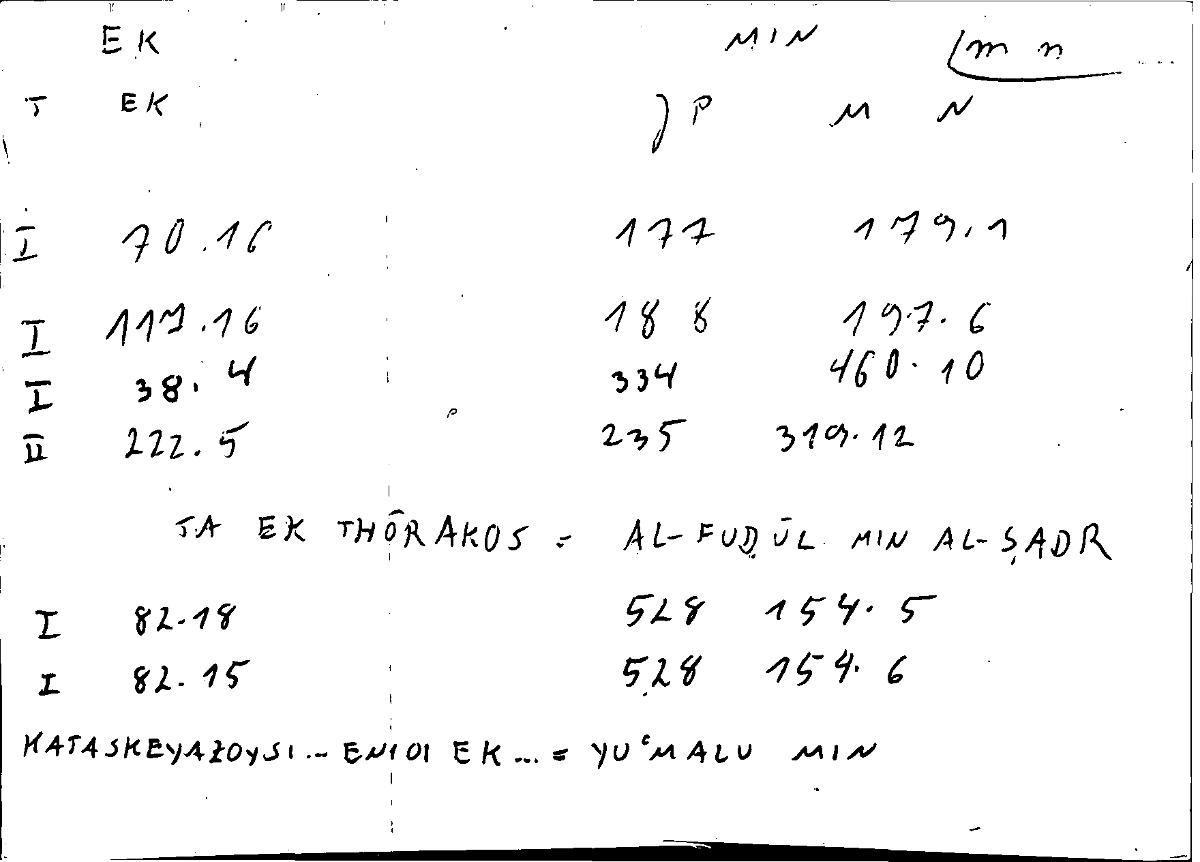 EK MIN m n
T EK P M N
I 70.16 177 179.1
I 117.16 188 197.6
I 38.4 334 460.10
II 222.5 235 319.12
TA EK THŌRAKOS = AL-FUḌŪL MIN AL-ṢADR
I 82.18 528 154.5
I 82.15 528 154.6
KATASKEYAZOYSI... ENIOI EK... = YUʿMALU MIN